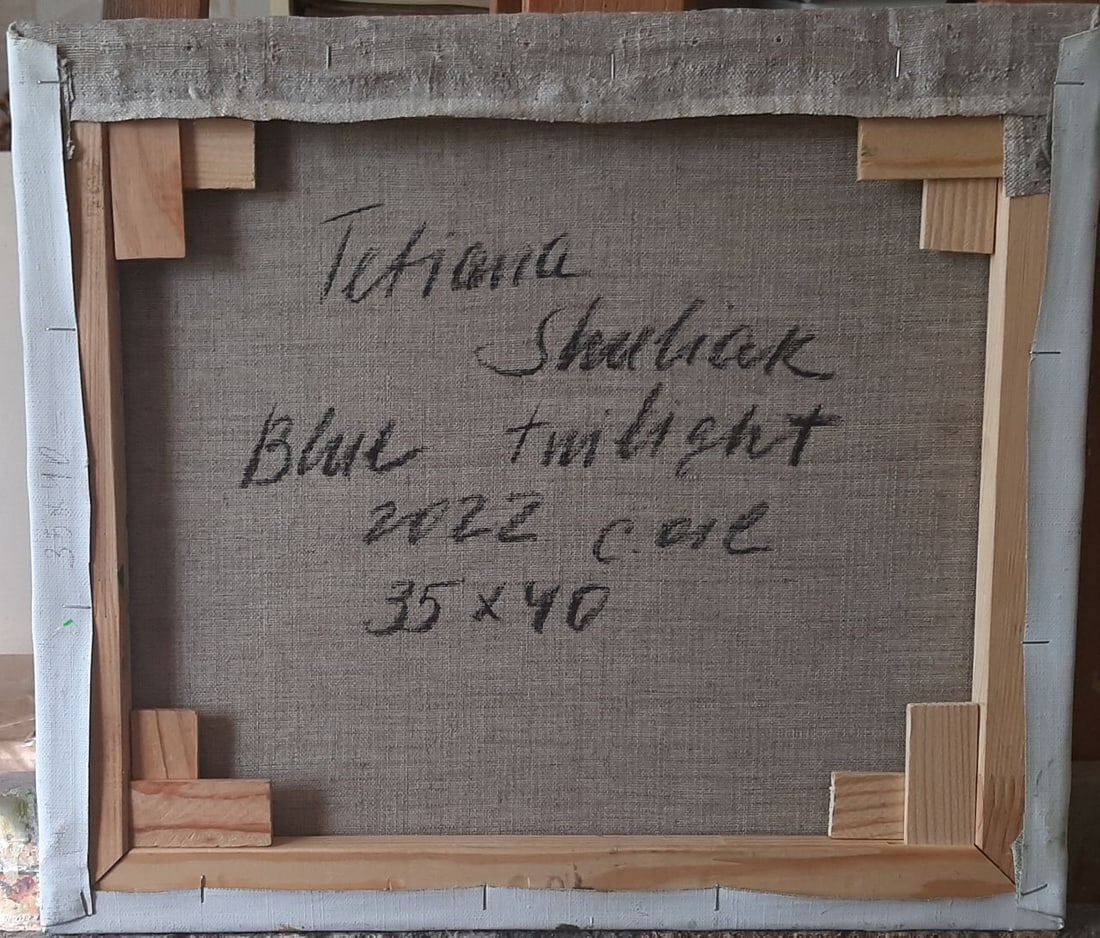 Tetiana
Shuliak
Blue twilight
2022 c. oil
35 x 40
35 x 40